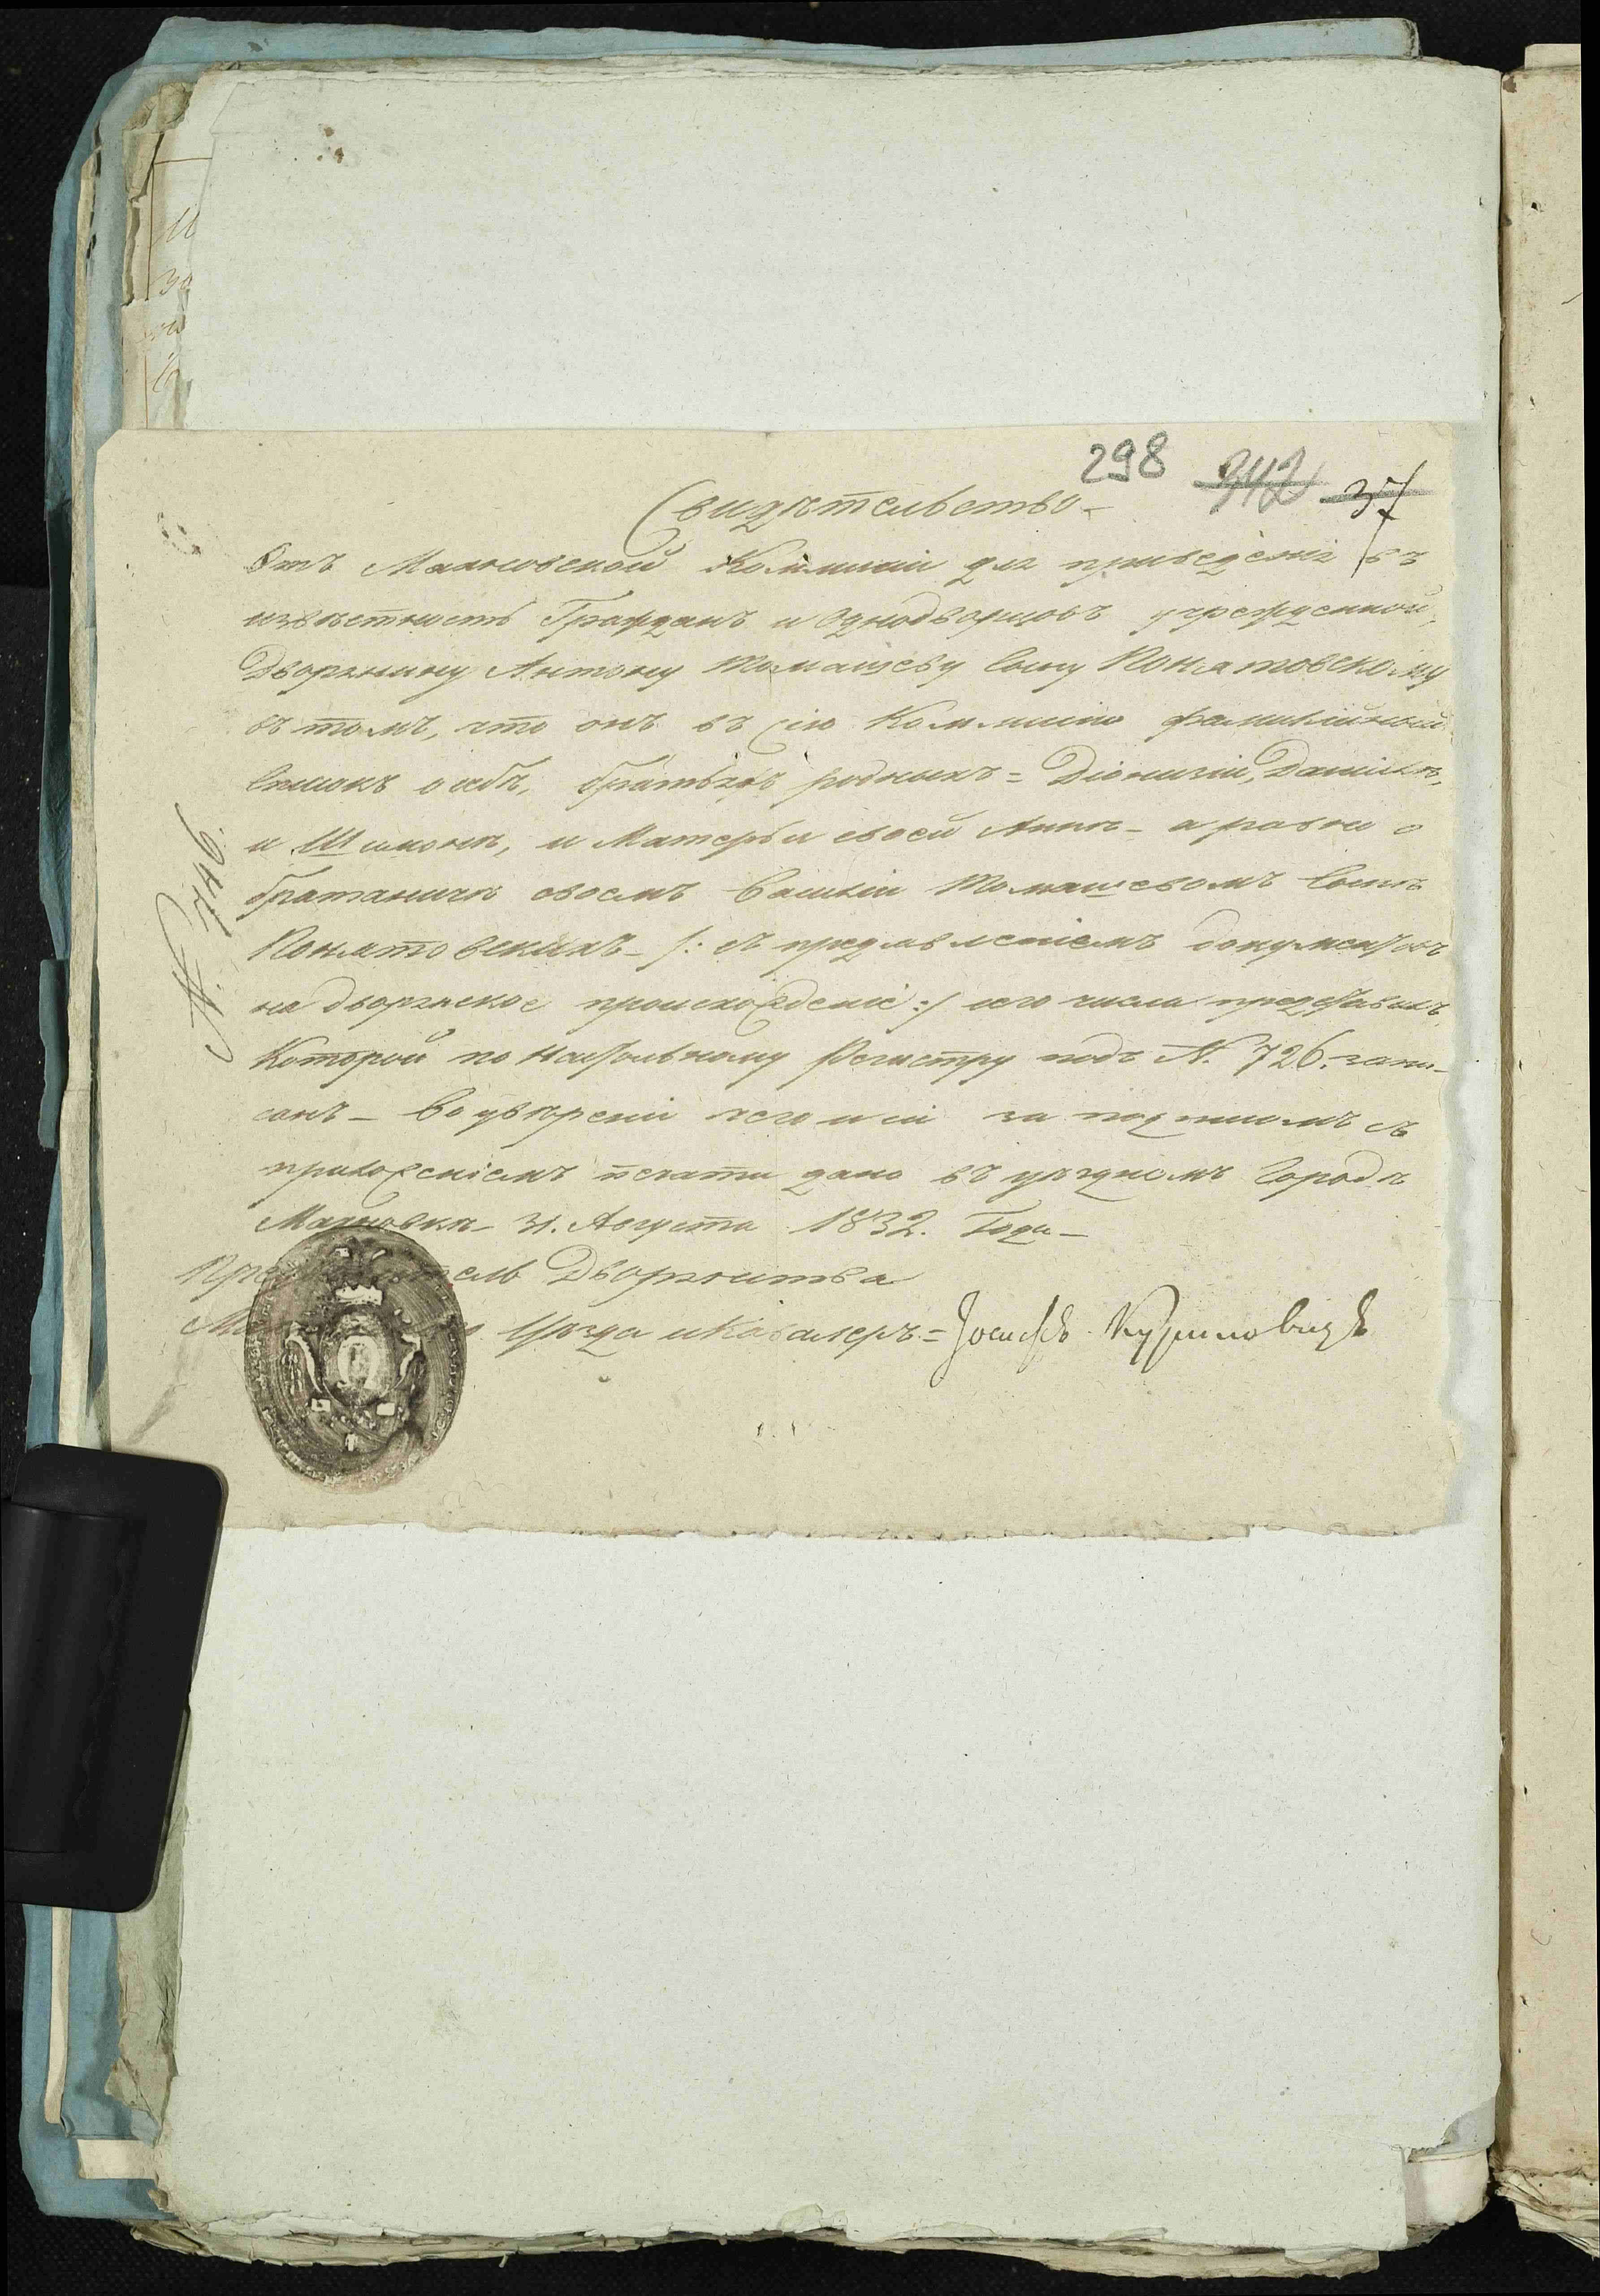 298 342 37
Свидѣтельство_
Отъ Махновской Коммисіи для приведенія въ
извѣстность Гражданъ и Однодворцовъ учрежденной,
Дворянину Антону Томашеву Сыну Понятовскому
въ томъ, что онъ въ сію Коммисію фамилійный
Списокъ о себѣ, братьяхъ родныхъ = Діонизіи, Данилѣ,
и Шимонѣ, и Матери своей Аннѣ_ а равно о
братаничѣ своемъ Томашевомъ Сынѣ
Понятовскихъ_ /: съ предъявленіемъ документовъ
на дворянское происхожденіе :/ сего числа представилъ,
Которой по Настольному Регистру подъ N. 726. запи_
санъ_ Во увѣреніи чего и сіи за подписомъ съ
приложеніемъ печати дано въ уѣздномъ Городѣ
Махновкѣ_ 31. Августа 1832. Года_
N. 746.
Дворянства
Уѣзда и Кавалеръ =